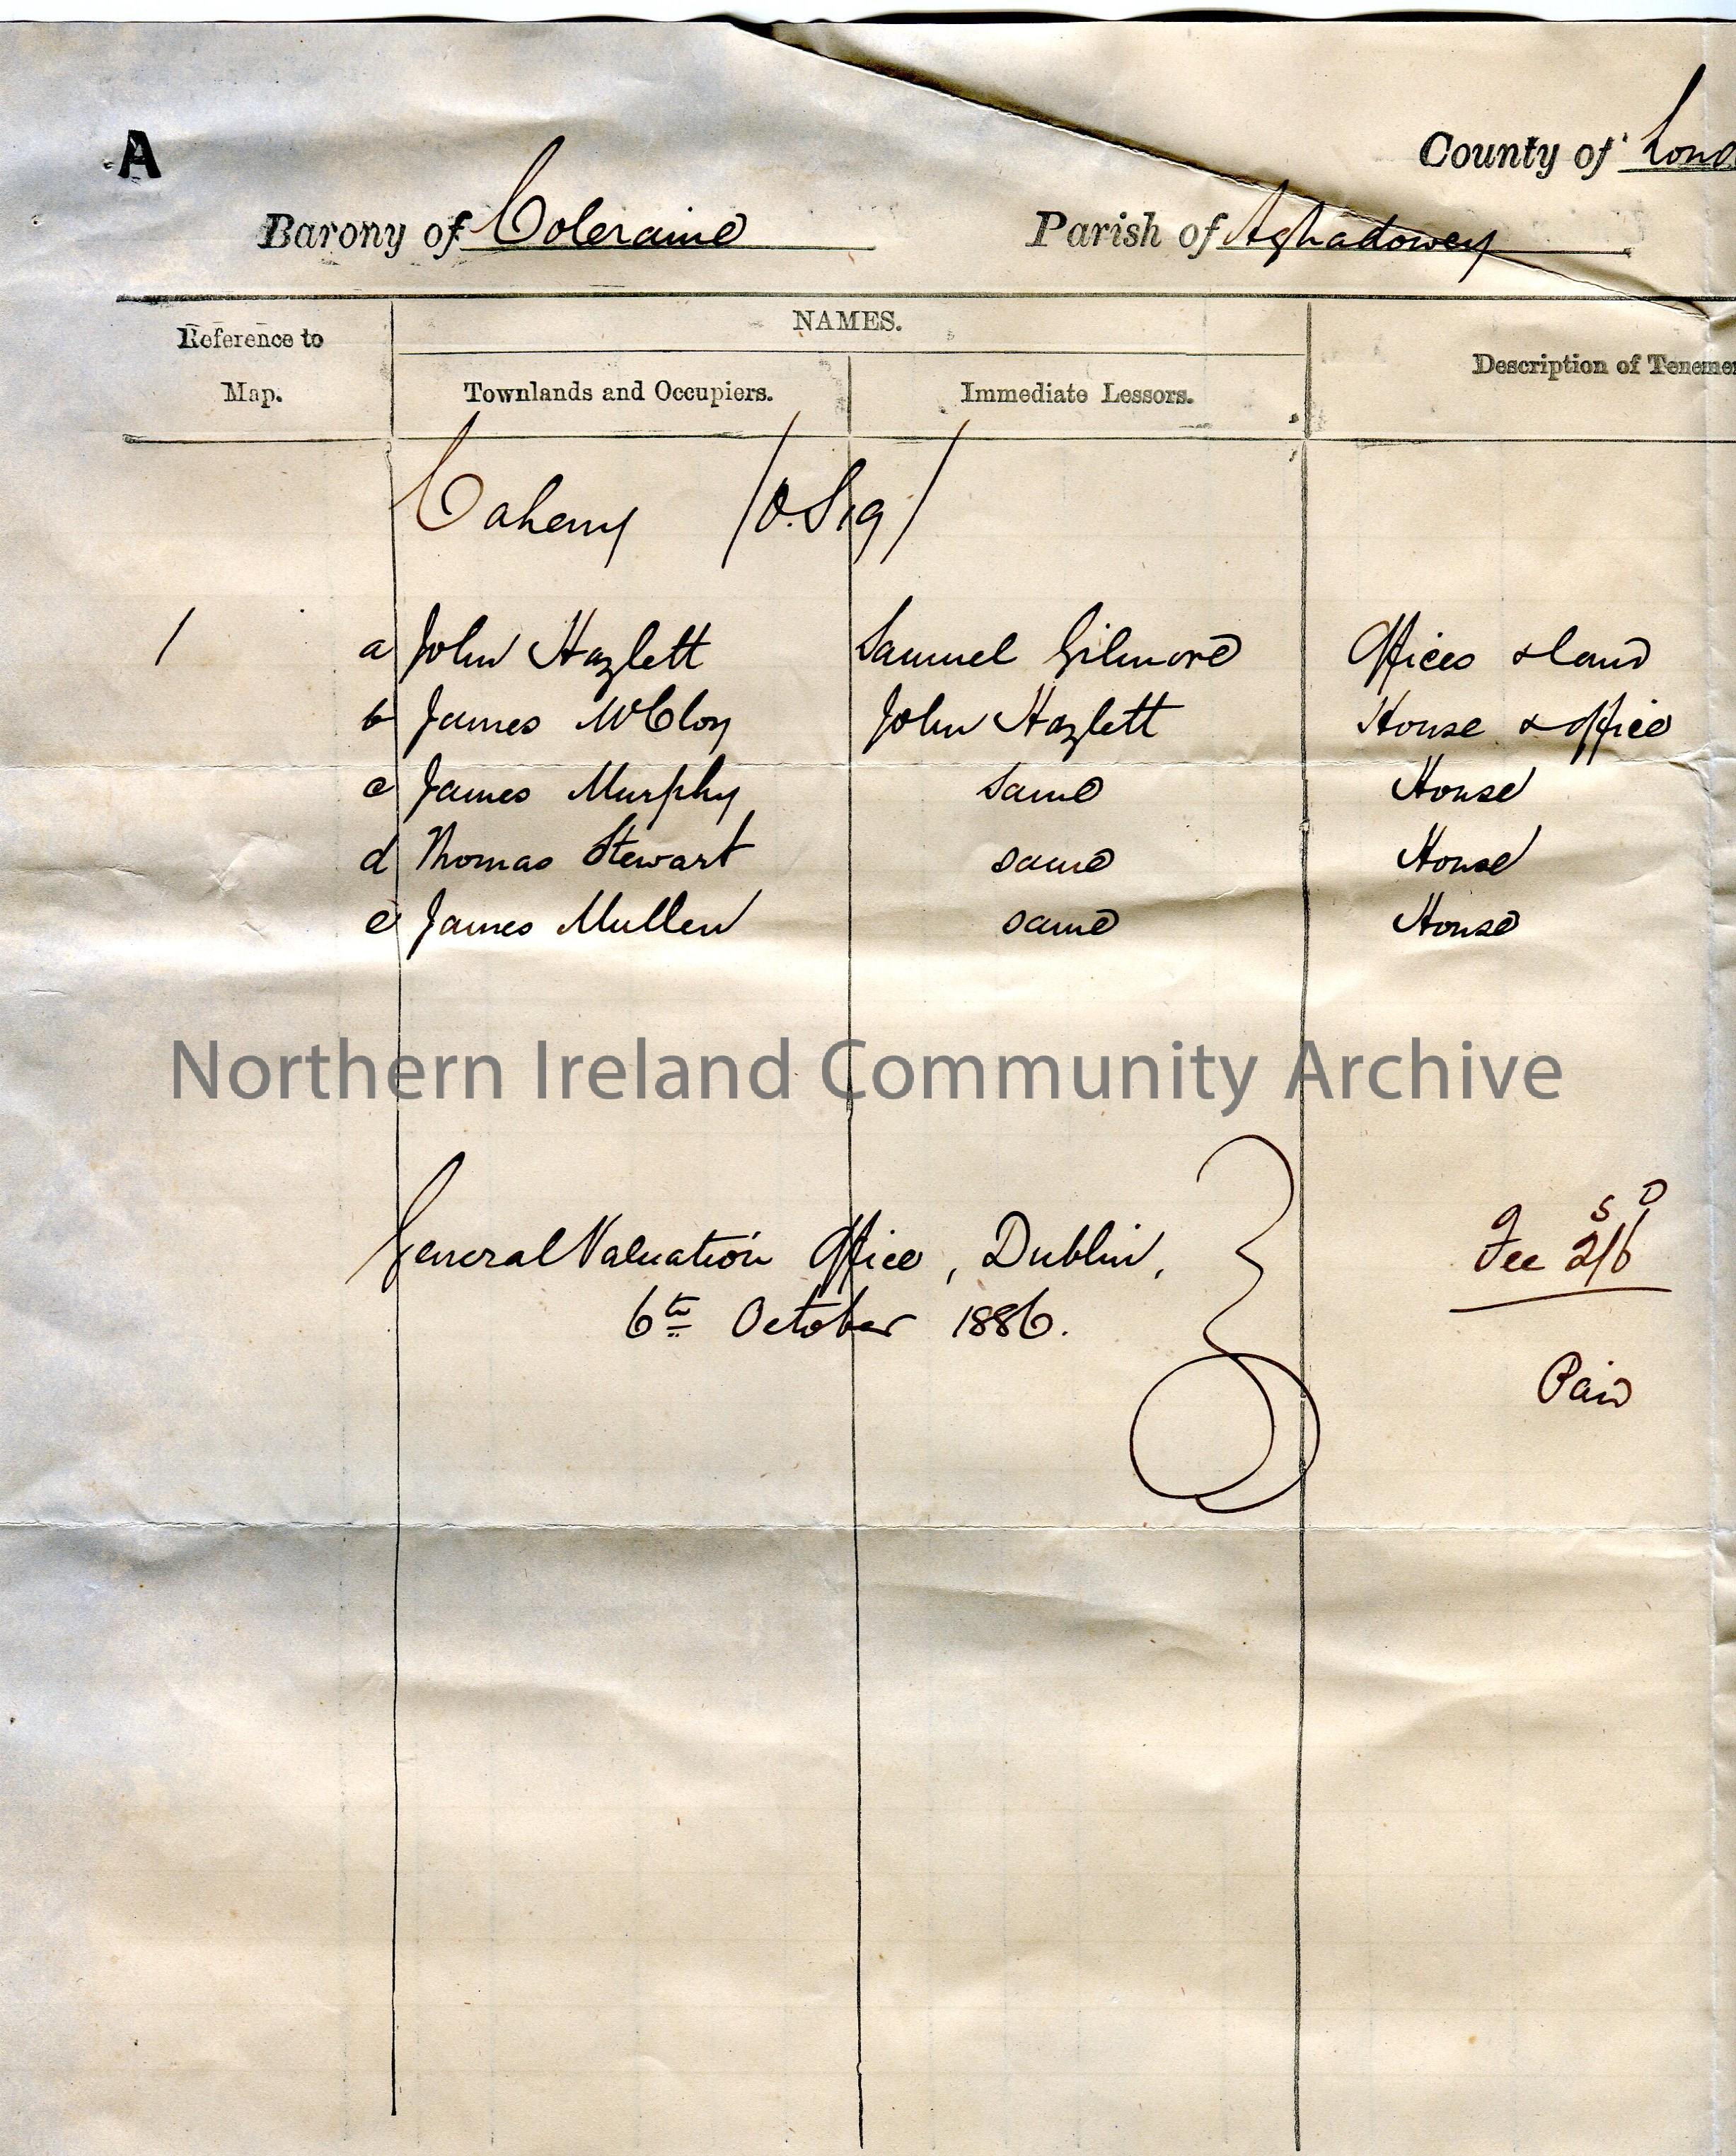 A
County of Lond
Barony of Coleraine Parish of Aghadowey
Reference to Map. NAMES. Description of Tenemen
Townlands and Occupiers. Immediate Lessors.
Caheny (O.S. 19)
1 a John Hazlett Samuel Gilmore Offices & land
b James McCloy John Hazlett House & office
c James Murphy same House
d Thomas Stewart same House
e James Mullen same House
Northern Ireland Community Archive
General Valuation Office, Dublin,
6th October 1886.
S D
Fee 2/6
Paid